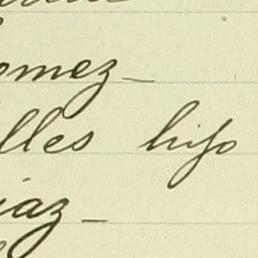 omez_
lles hijo
iaz_